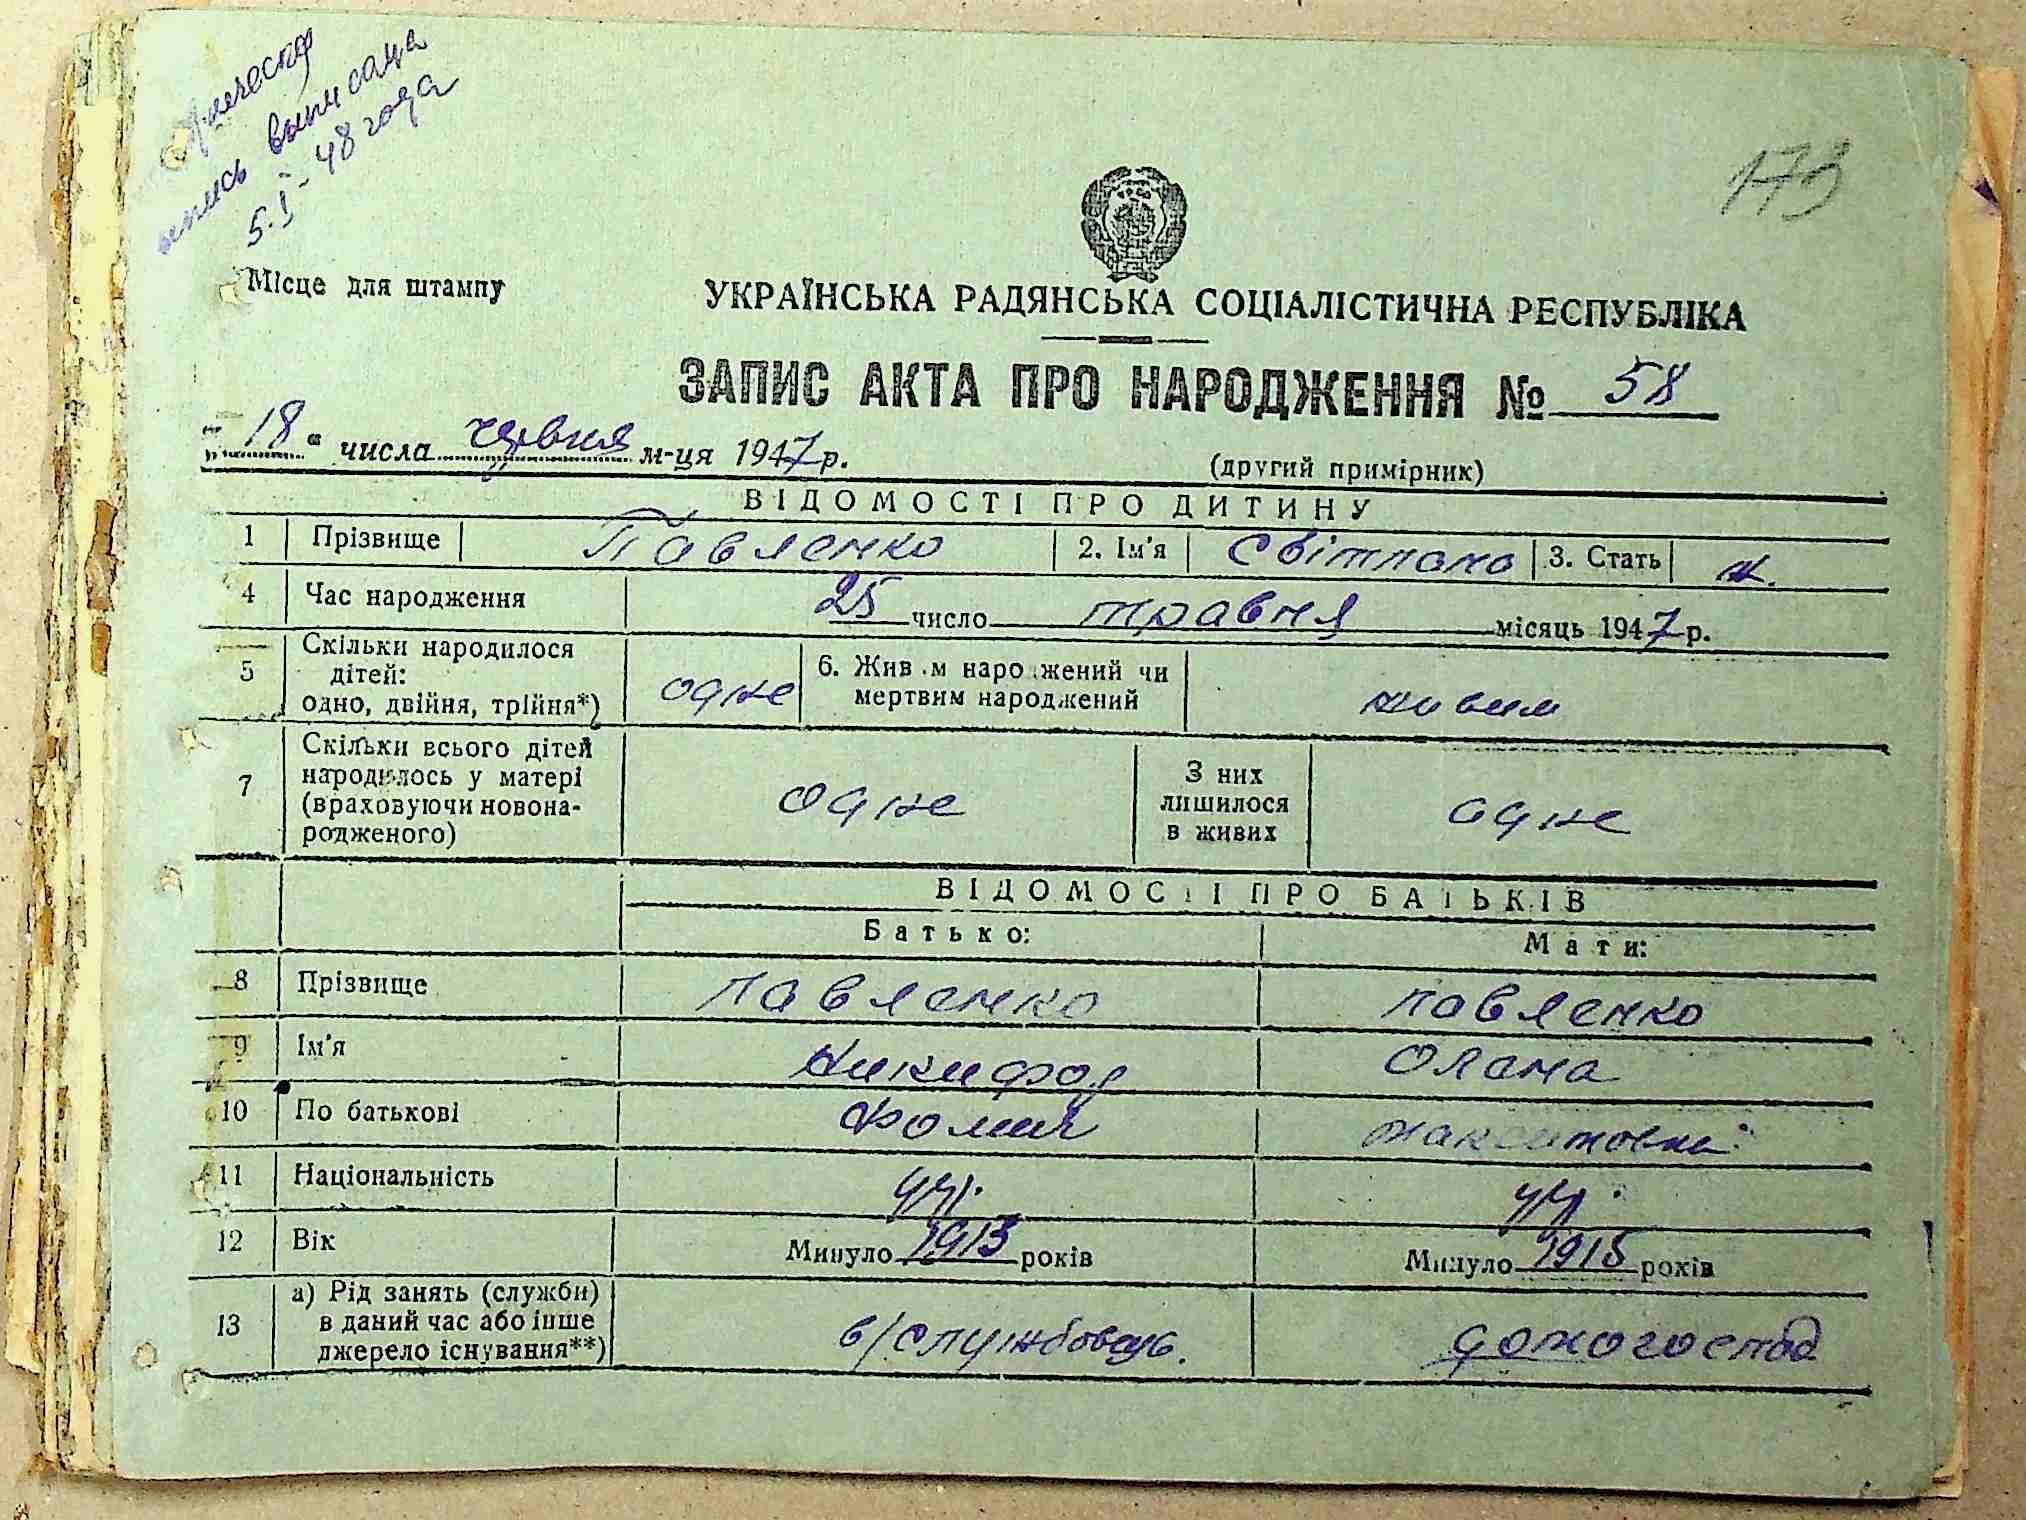 выписана
5.I-48 года
173
Місце для штампу
УКРАЇНСЬКА РАДЯНСЬКА СОЦІАЛІСТИЧНА РЕСПУБЛІКА
ЗАПИС АКТА ПРО НАРОДЖЕННЯ № 58
"18" числа червня м-ця 1947 р.
(другий примірник)
ВІДОМОСТІ ПРО ДИТИНУ
1 Прізвище Павленко 2. Ім'я Світлана 3. Стать ж.
4 Час народження 25 число травня місяць 1947 р.
5 Скільки народилося дітей: одно, двійня, трійня*) одне 6. Живим народжений чи мертвим народжений живим
7 Скільки всього дітей народилось у матері (враховуючи новонародженого) одне З них лишилося в живих одне
ВІДОМОСТІ ПРО БАТЬКІВ
Батько: Мати:
8 Прізвище Павленко Павленко
9 Ім'я Никифор Олена
10 По батькові Фомич Максимовна
11 Національність укр. укр.
12 Вік Минуло 1913 років Минуло 1915 років
13 а) Рід занять (служби) в даний час або інше джерело існування**) в/службовець. домогоспод